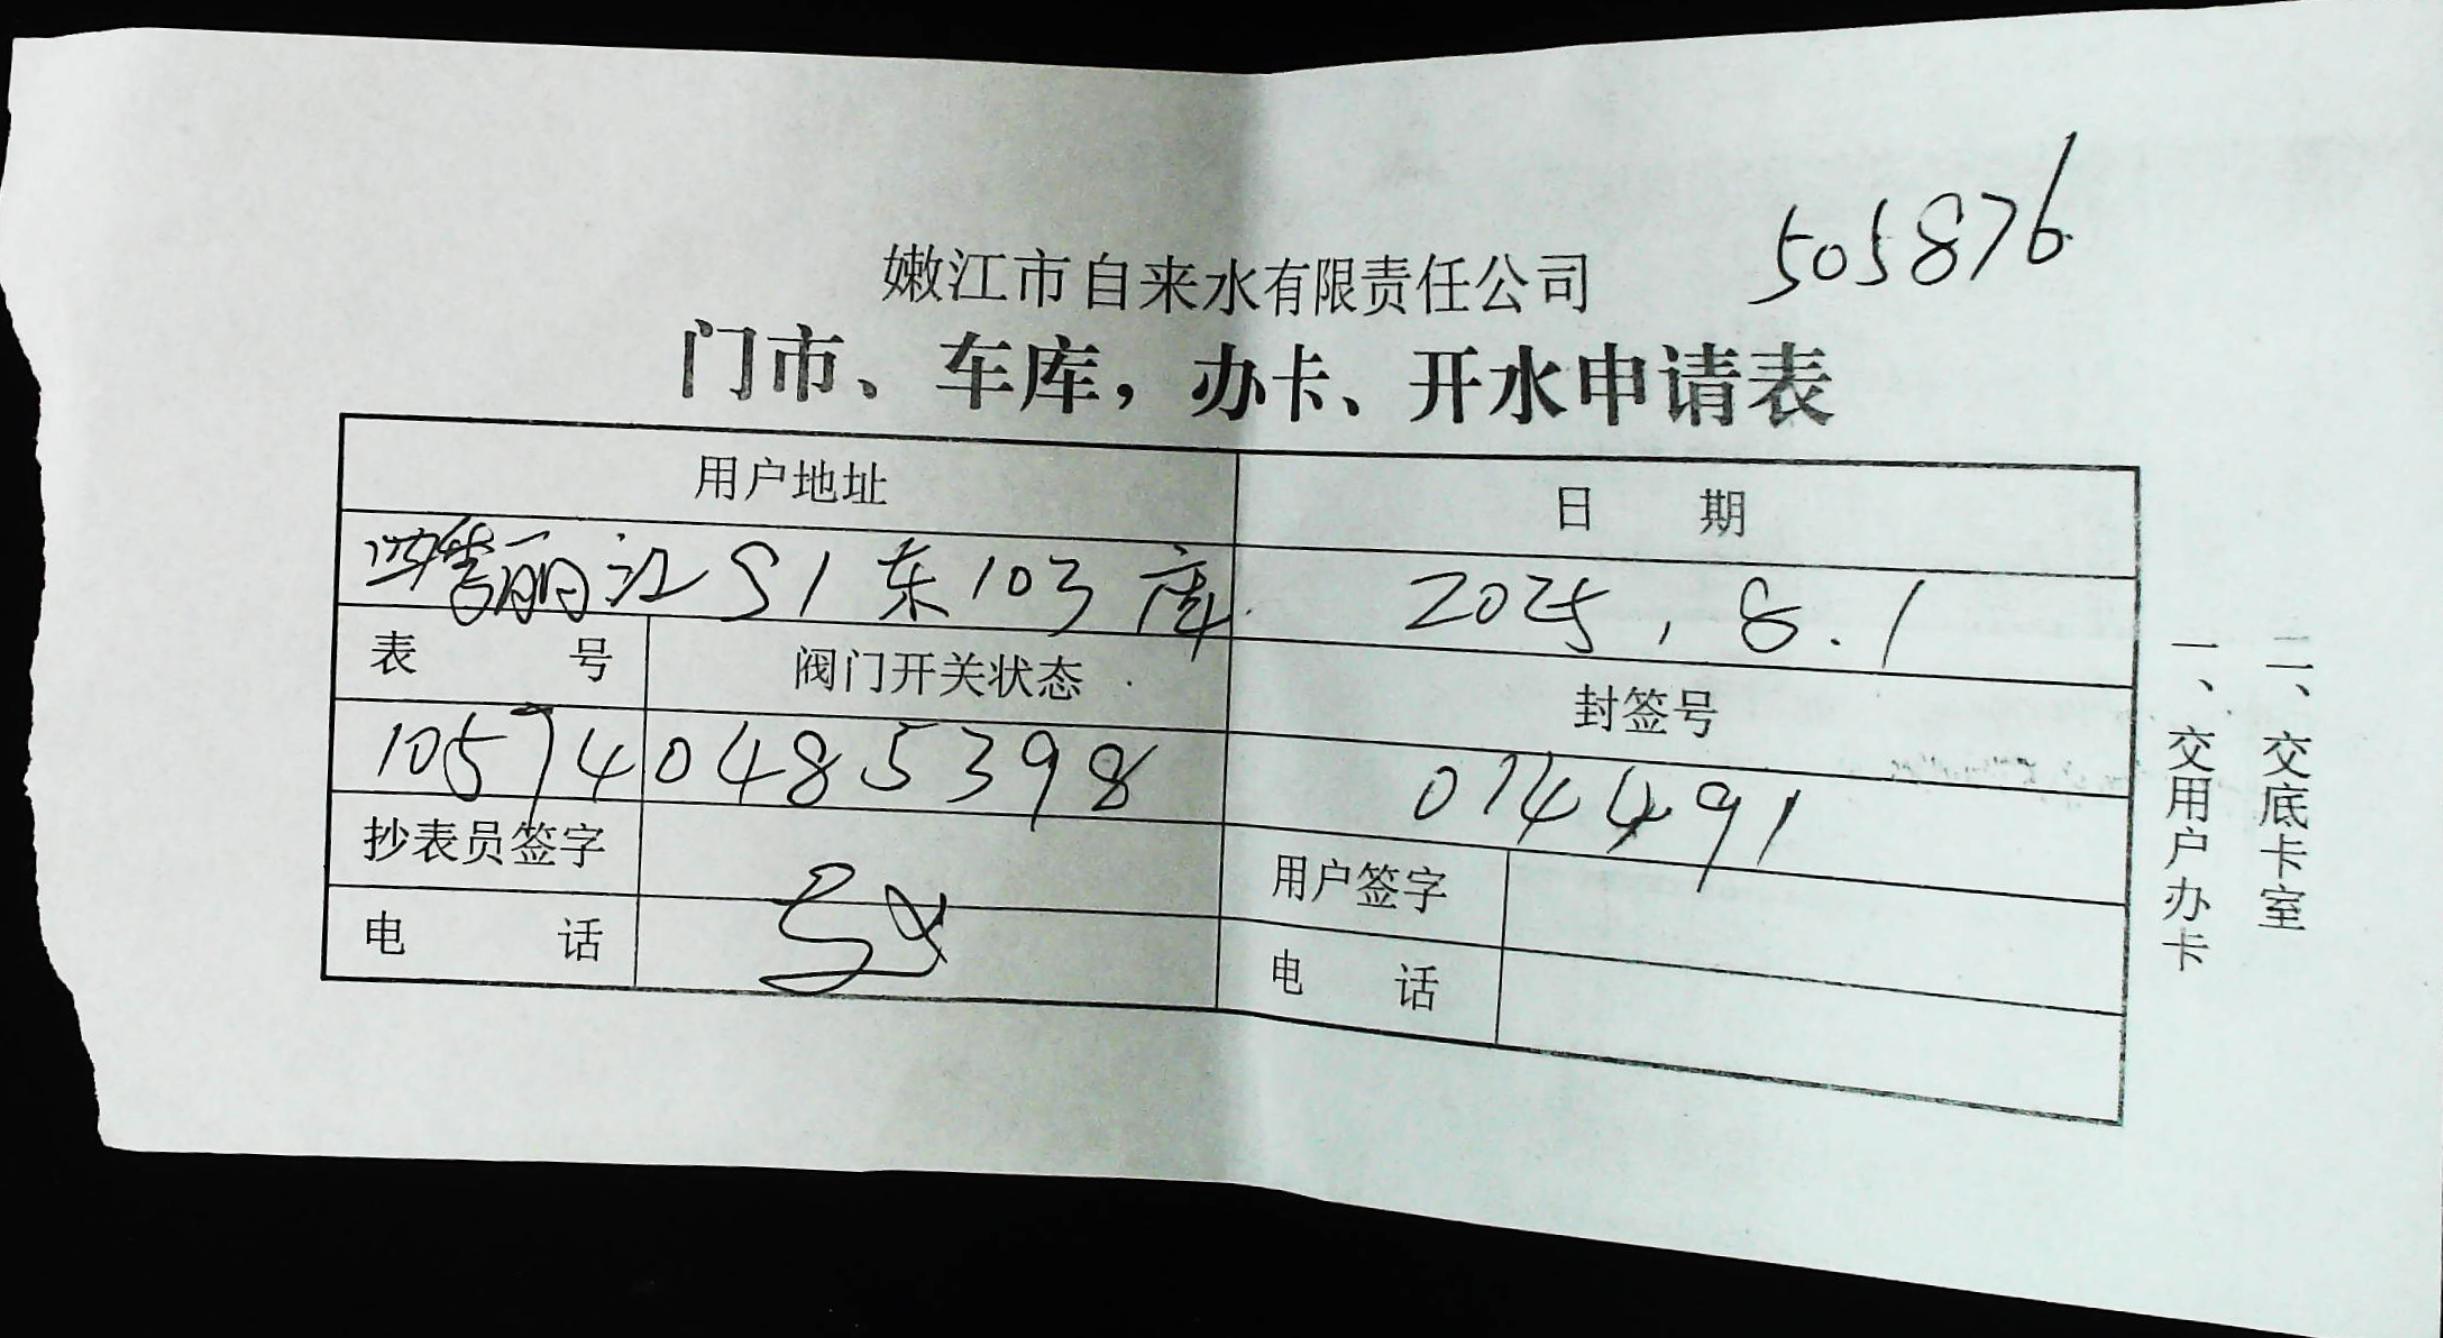 505876
嫩江市自来水有限责任公司
门市、车库，办卡、开水申请表
用户地址 日 期
丽江 S1 东 103 库 2025，8.1
表 号 阀门开关状态 封签号
105740485398 074491
抄表员签字 用户签字
电 话 电 话
一、交用户办卡
二、交底卡室